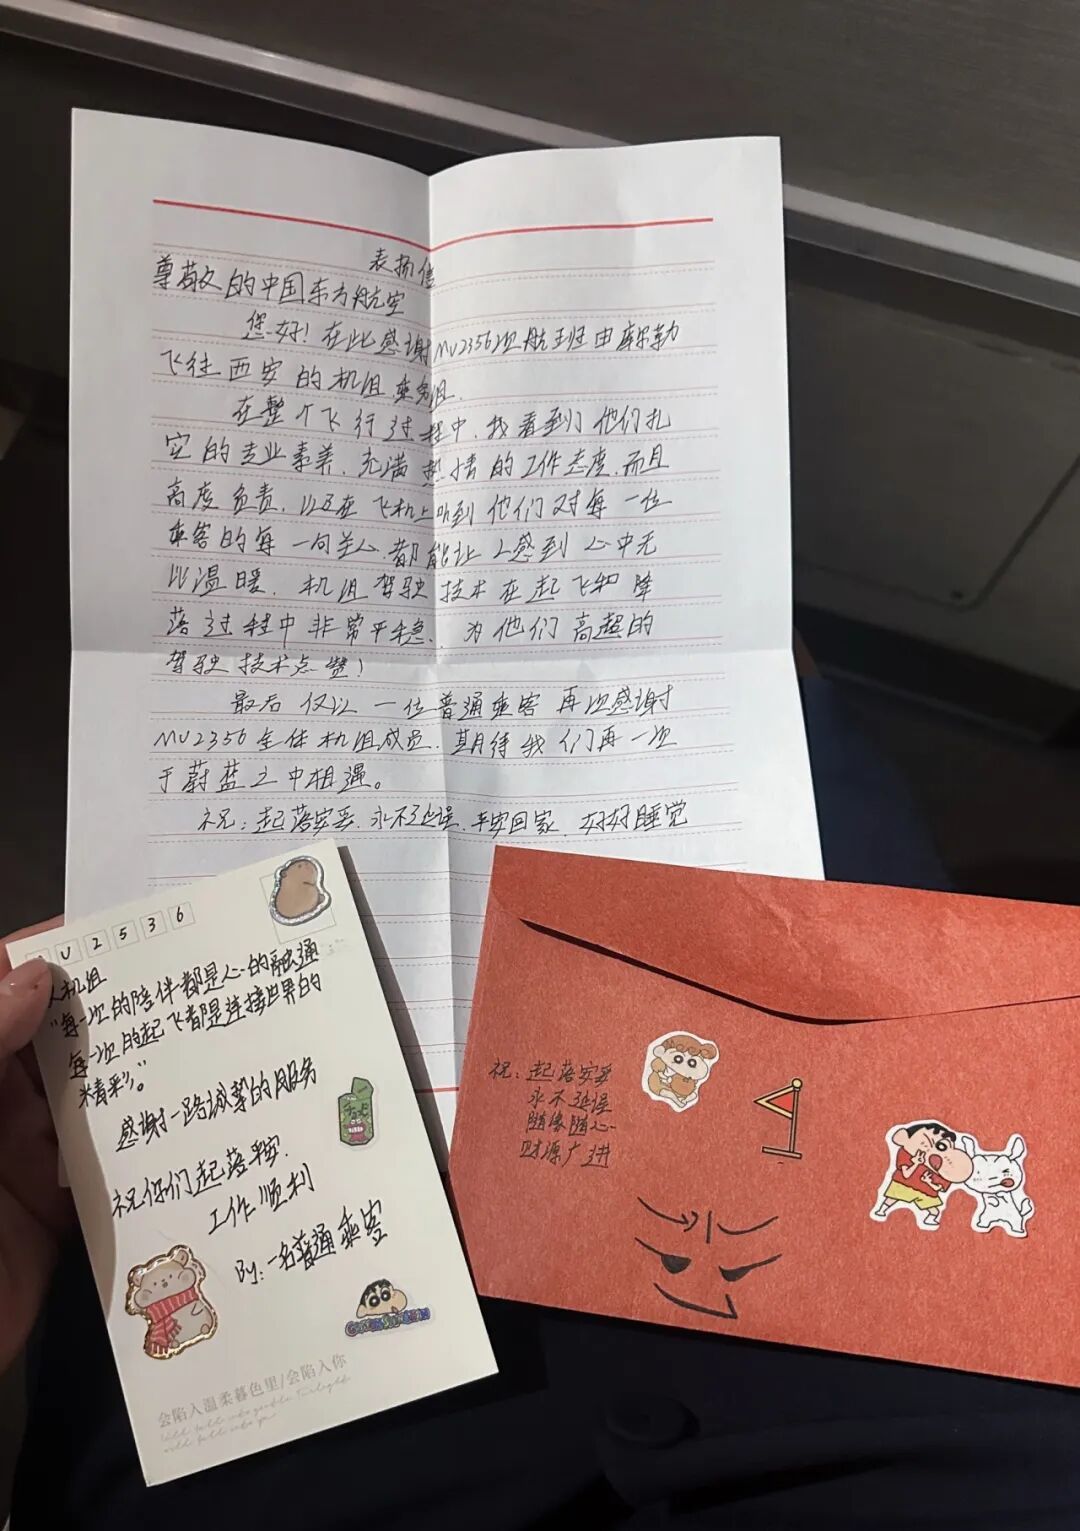 表扬信
尊敬的中国东方航空
您好！在此感谢MU2356次航班由库尔勒
飞往西安的机组乘务组.
在整个飞行过程中,我看到了他们扎
实的专业素养.充满热情的工作态度.而且
高度负责.以及在飞机上听到他们对每一位
乘客的每一句关心.都能让人感到心中无
比温暖.机组驾驶技术在起飞和降
落过程中非常平稳.为他们高超的
驾驶技术点赞！
最后仅以一位普通乘客再次感谢
MU2356全体机组成员.期待我们再一次
于蔚蓝之中相遇。
祝：起落安妥.永不延误.平安回家.好好睡觉
U2536
机组
"每一次的陪伴都是心的融通
每一次的起飞都是连接世界的
精彩。"
感谢一路诚挚的服务
祝你们起落平安.
工作顺利
By:一名普通乘客
会陷入温柔暮色里/会陷入你
祝：起落安妥
永不延误
随缘随心
财源广进